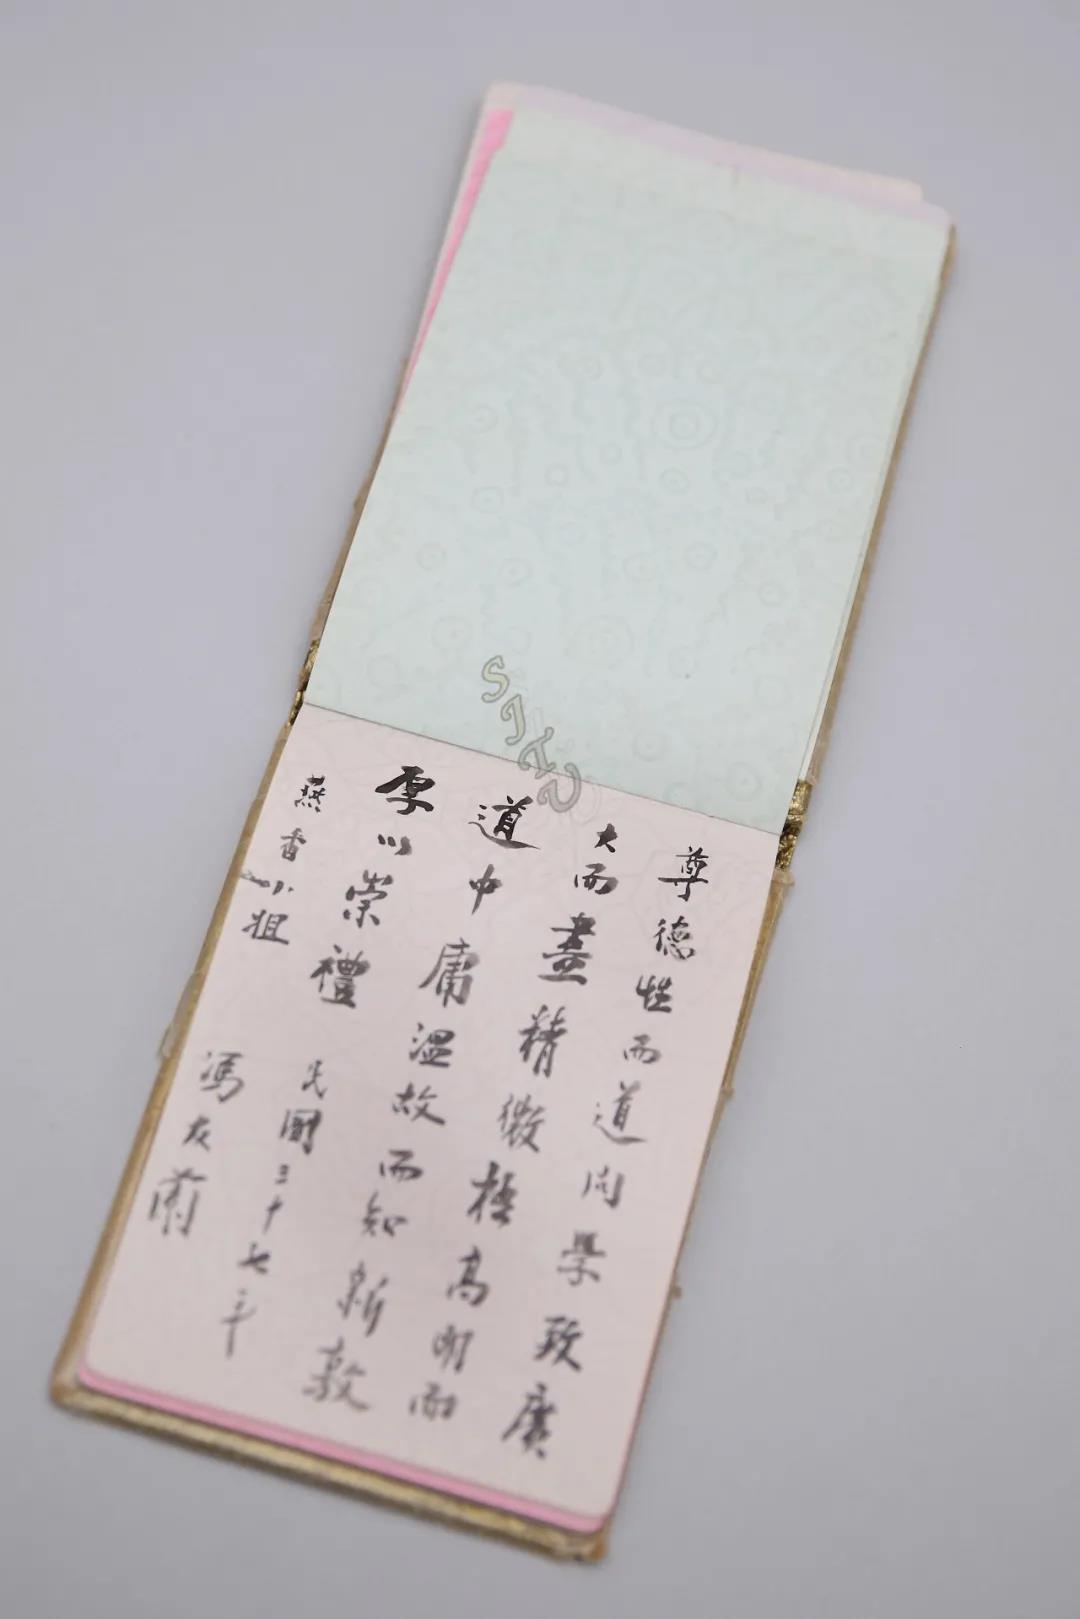 尊德性而道问學致廣
大而盡精微極高明而
道中庸温故而知新敦
厚以崇禮
燕香小姐
民國三十七年
馮友蘭